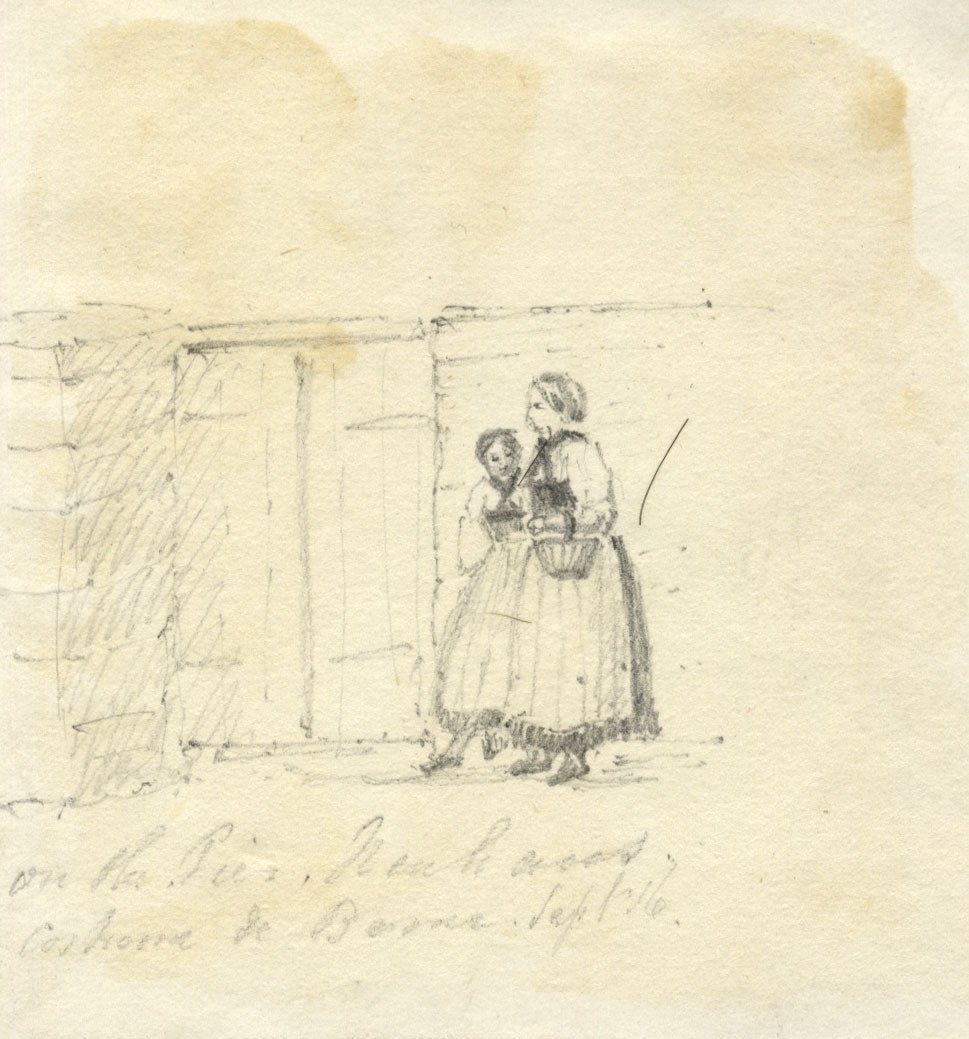 on the Pier. Neuhaus,
Costume de Berne. Sept 16.